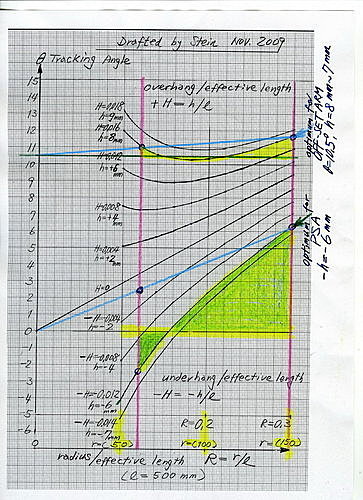 Drafted by Stein Nov. 2009
θ Tracking Angle
15
14
13
12
11
10
9
8
7
6
5
4
3
2
1
0
-1
-2
-3
-4
-5
-6
overhang/effective length
+H = h/l
H=0.018
h=9mm
H=0.016
h=8mm
H=0.012
h=+6
mm
H=0.008
h=+4
mm
H=0.004
h=+2mm
H=0
-H=0.004
h=-2
-H=0.008
h=-4
-H=0.012
h=-6
mm
-H=0.014
h=-7mm
optimum for
OFF-SET ARM
h=8mm~7mm
optimum for
PSA
-h=-6mm
underhang/effective length
-H = -h/l
R=0.2
R=0.3
0
r=(50)
r=(100)
r=(150)
radius/effective length R=r/l
(l=500mm)